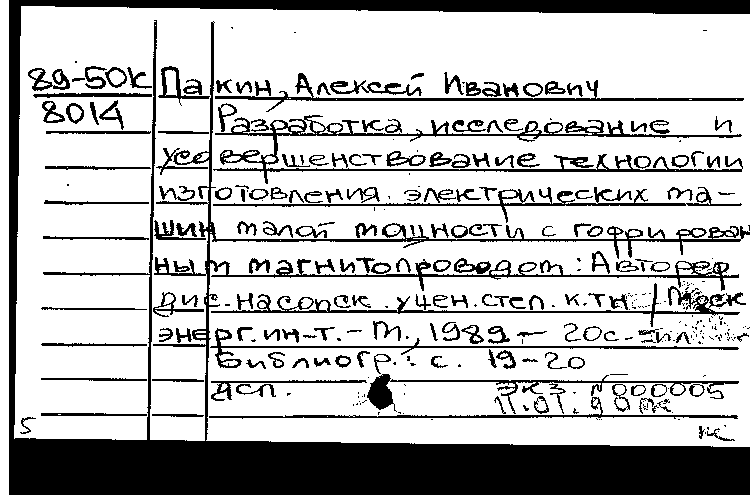 89-50к Пакин, Алексей Иванович
8014 Разработка, исследование и
усовершенствование технологии
изготовления электрических ма-
шин малой мощности с гофрирован
ным магнитопроводом: Автореф
дис. на соиск. учен. степ. к.т.н /Моск
энерг. ин-т. - М., 1989 - 20с. ил
Библиогр.: с. 19-20
дсп. Экз. N000005
11.01.90
5 ж